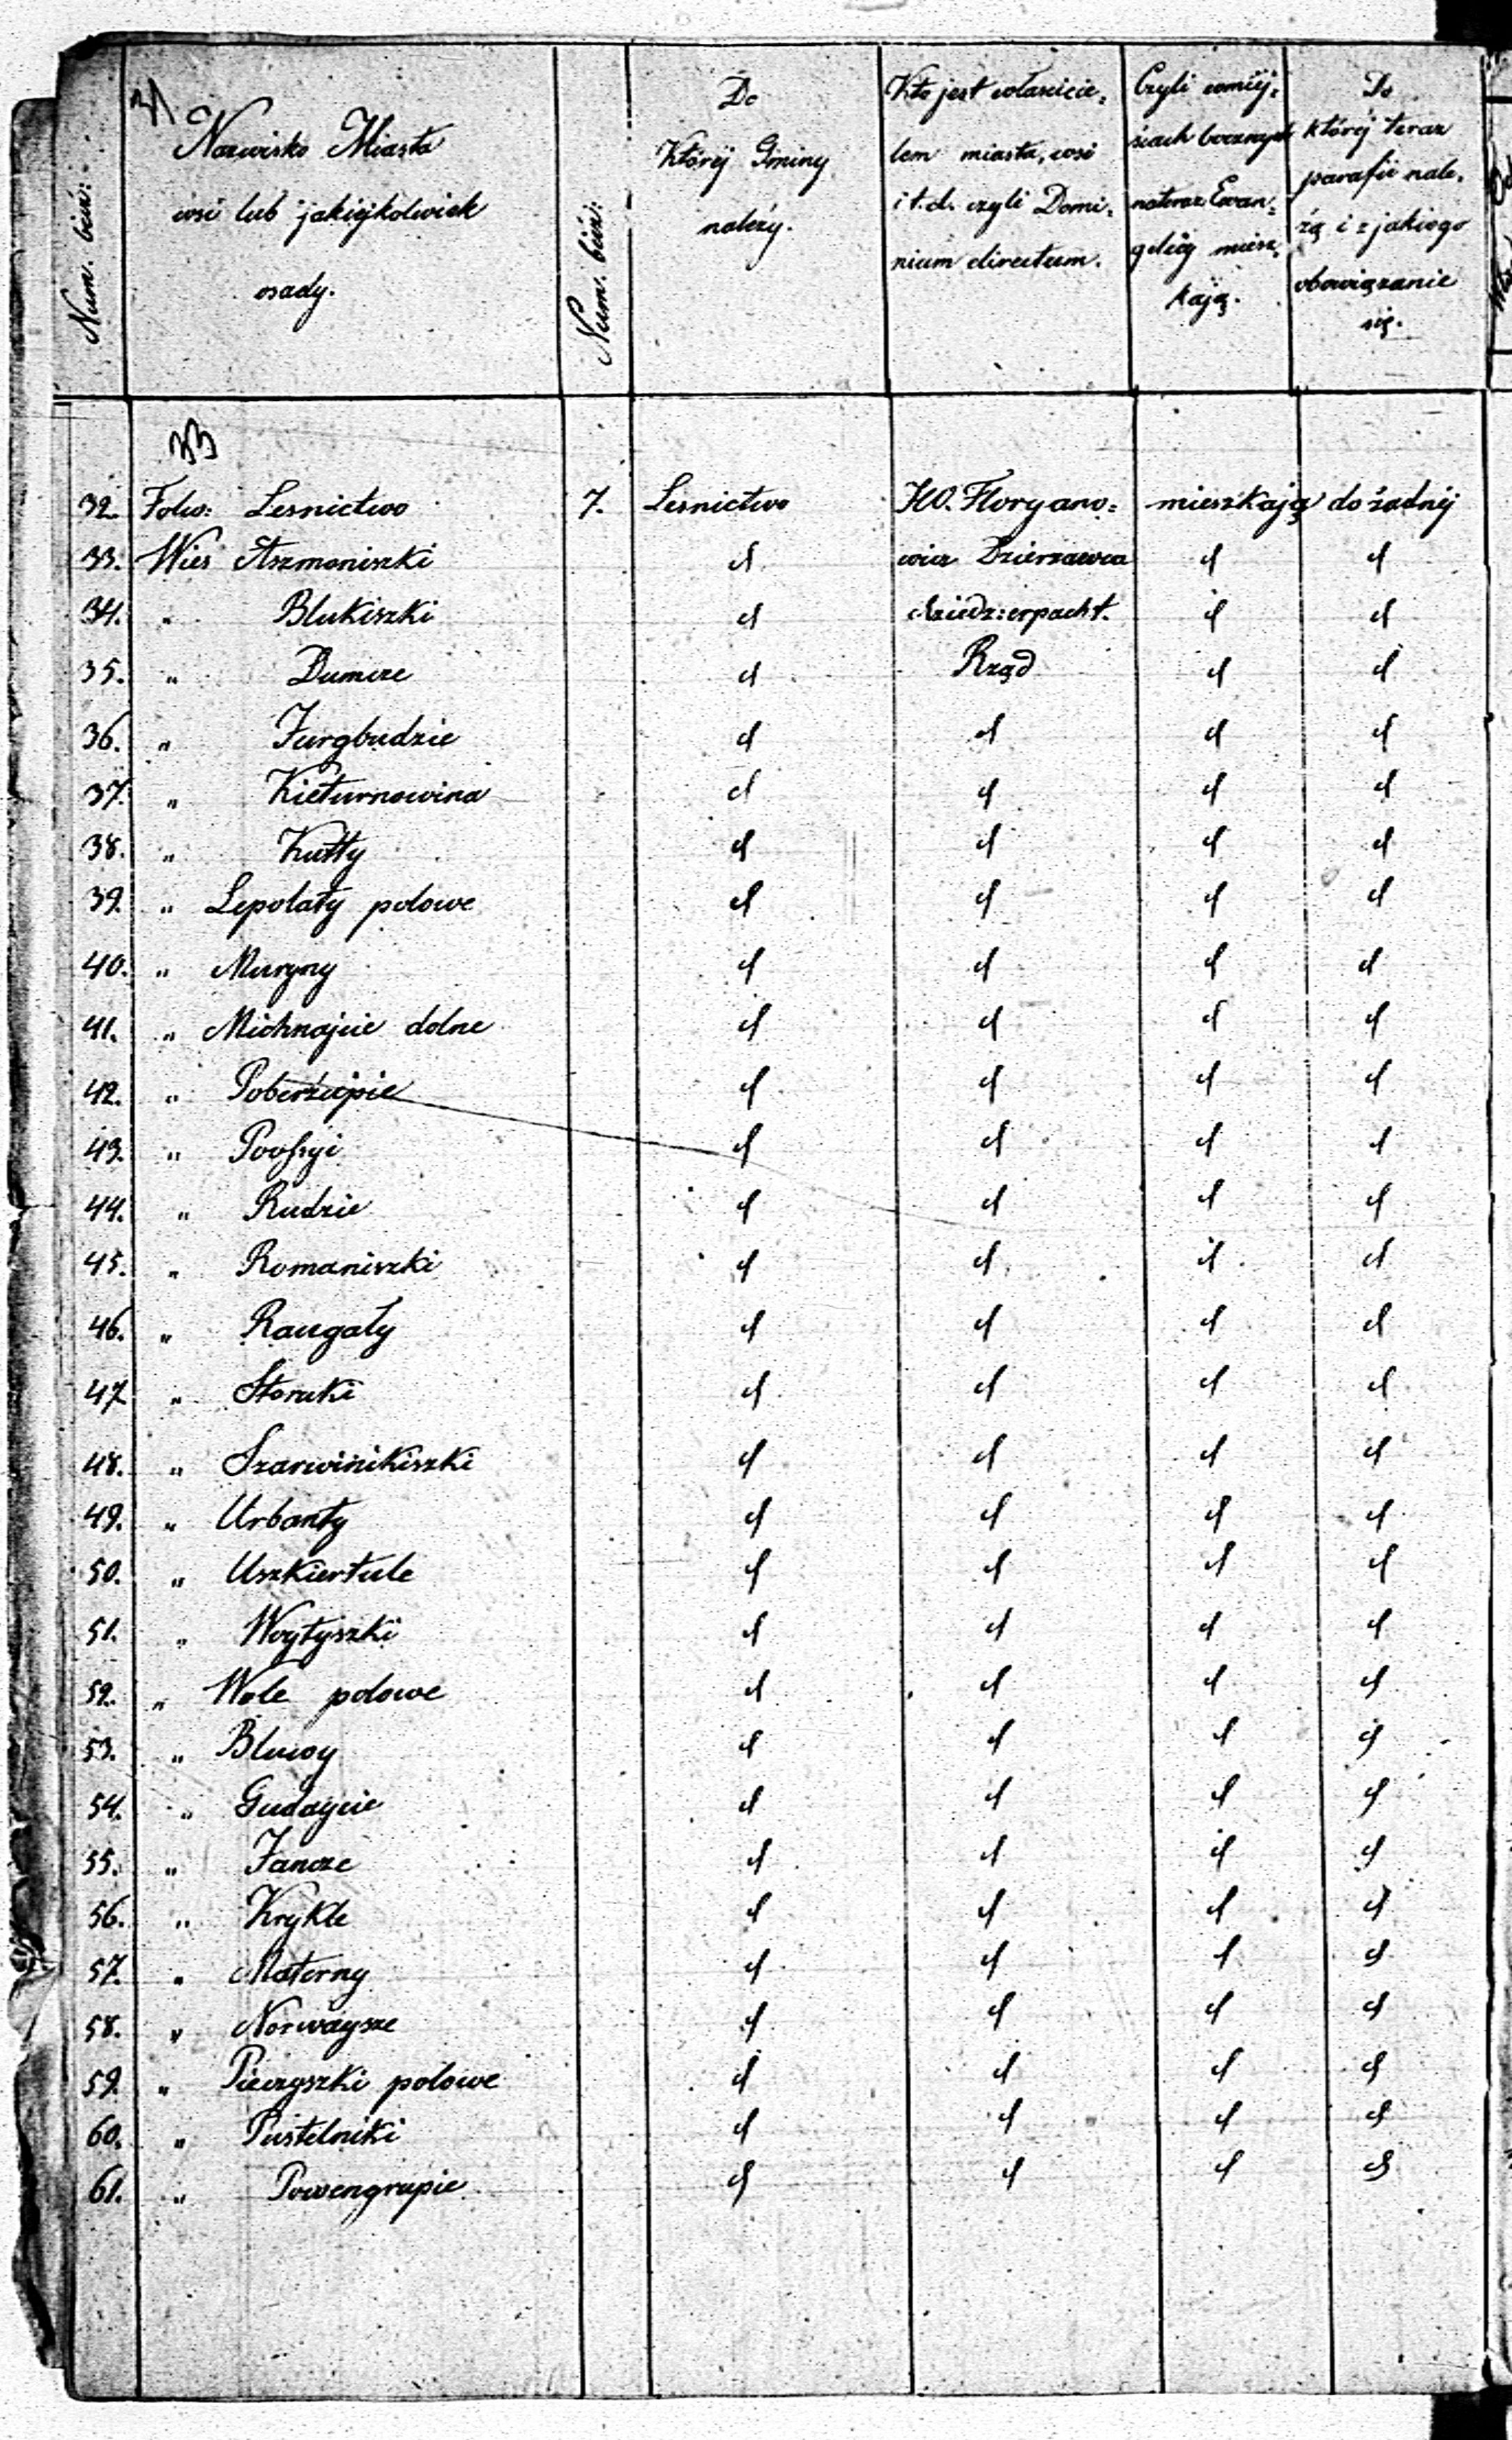 Num. bież:
Nazwisko Miasta
wsi lub jakiejkolwiek
osady.
Num. bież:
Do
Której Gminy
należy.
Kto jest właścicie=
lem miasta, wsi
i t. d. czyli Domi=
nium directum.
Czyli w miej=
scach bocznych
na teraz Ewan=
gelicy miesz=
kają.
Do
której teraz
parafii nale=
żą i z jakiego
obowiązanie
się.
33
32. Folw: Lesnictwo 7. Lesnictwo W. Floryano= mieszkają do żadnéj
33. Wieś Aszmoniszki d wicz Dzierzawca d d
34. " Blukiszki d dziedz: erpacht. d d
35. " Dumcze d Rząd d d
36. " Jurgbudzie d d d d
37. " Kieturnowina d d d d
38. " Kutty d d d d
39. " Lepołaty polowe d d d d
40. " Muryny d d d d
41. " Michnajcie dolne d d d d
42. " Poberżupie d d d d
43. " Powssyi d d d d
44. " Rudzie d d d d
45. " Romaniszki d d d d
46. " Raugały d d d d
47. " Storuki d d d d
48. " Szarwinikiszki d d d d
49. " Urbanty d d d d
50. " Uszkiertule d d d d
51. " Woytyszki d d d d
52. " Wole polowe d d d d
53. " Bluwy d d d d
54. " Gudaycie d d d d
55. " Jancze d d d d
56. " Krykle d d d d
57. " Materny d d d d
58. " Norwaysze d d d d
59. " Pieczyszki polowe d d d d
60. " Pustelniki d d d d
61. " Powengrupie d d d d